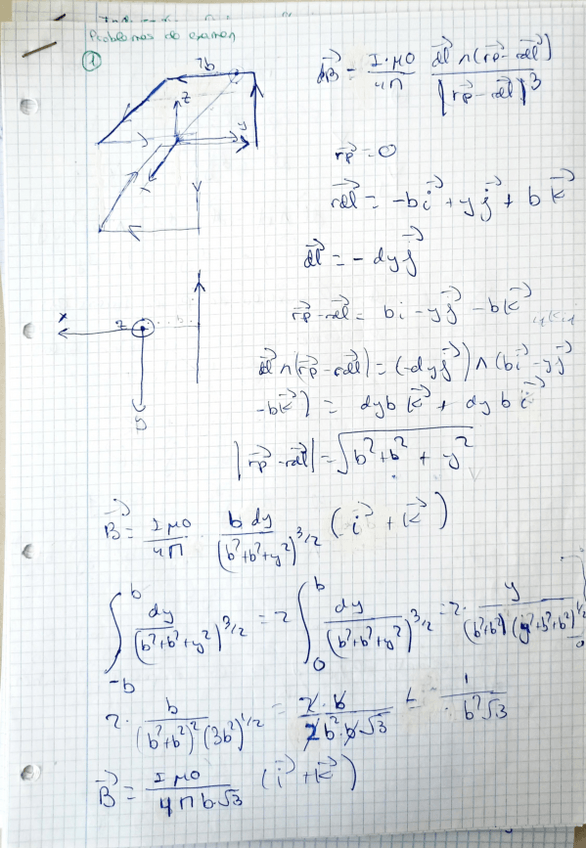 Problemas de examen
①
2b
z
y
x
y
x
z
b
y
dB⃗ = I·μ0/4π · dl⃗ ∧ (rp⃗ - rdl⃗)/|rp⃗ - rdl⃗|³
rp⃗ = 0
rdl⃗ = -b i⃗ + y j⃗ + b k⃗
dl⃗ = - dy j⃗
rp⃗ - rdl⃗ = b i - y j⃗ - b k⃗
dl⃗ ∧ (rp⃗ - rdl⃗) = (-dy j⃗) ∧ (b i⃗ - y j⃗
-b k⃗) = dy b k⃗ + dy b i⃗
|rp⃗ - rdl⃗| = √(b² + b² + y²)
B⃗ = I μ0/4π · b dy/(b²+b²+y²)^3/2 (i⃗ + k⃗)
∫_-b^b dy/(b²+b²+y²)^3/2 = 2 ∫_0^b dy/(b²+b²+y²)^3/2 = 2 · y/((b²+b²)(y²+b²+b²)^1/2)
2 · b/((b²+b²)² (3b²)^1/2) = 2·b/(2b²·b√3) = 1/(b²√3)
B⃗ = I μ0/(4π b √3) (i⃗ + k⃗)